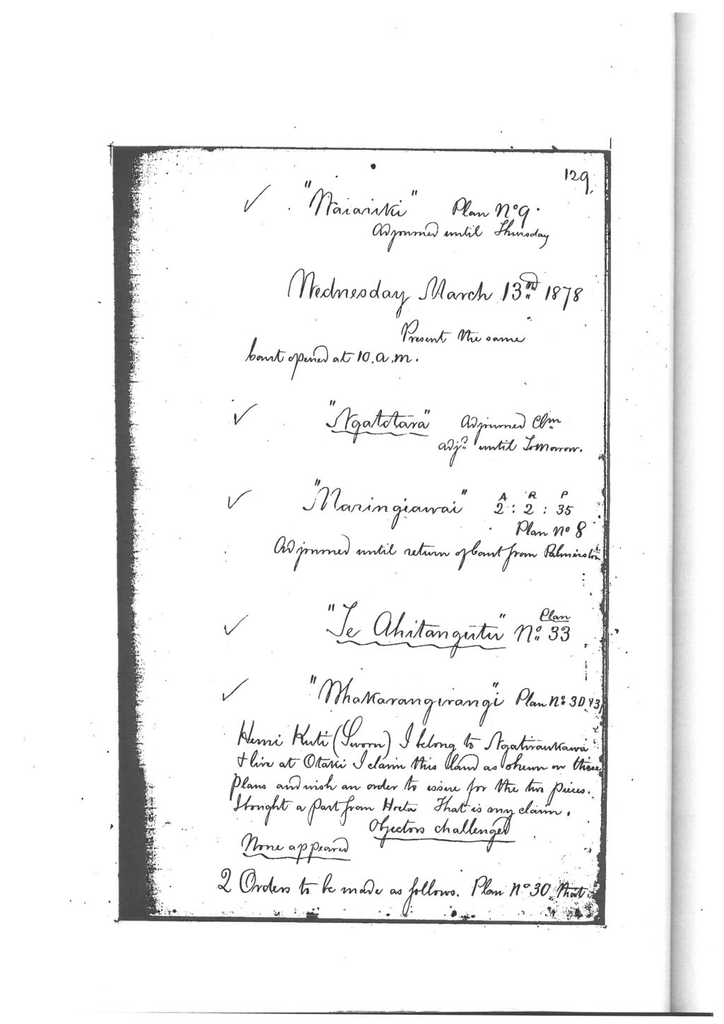 129.
✓ "Waiariki" Plan No 9.
Adjourned until Thursday
Wednesday March 13th 1878
Present the same
Court opened at 10. a.m.
✓ "Ngatotara" Adjourned Clm
adjd until Tomorrow.
✓ "Maringiawai" A R P
2 : 2 : 35
Plan No 8
Adjourned until return of Court from Palmerston
✓ "Te Ahitangutu" Plan
No 33
✓ "Whakarangirangi" Plan No 30 43
Hemi Kuti (Sworn) I belong to Ngatiraukawa
& live at Otaki I claim this land as shewn on these
Plans and wish an order to issue for the two pieces.
I bought a part from Hoeta That is my claim.
Objectors challenged
None appeared
2 Orders to be made as follows. Plan No 30 That